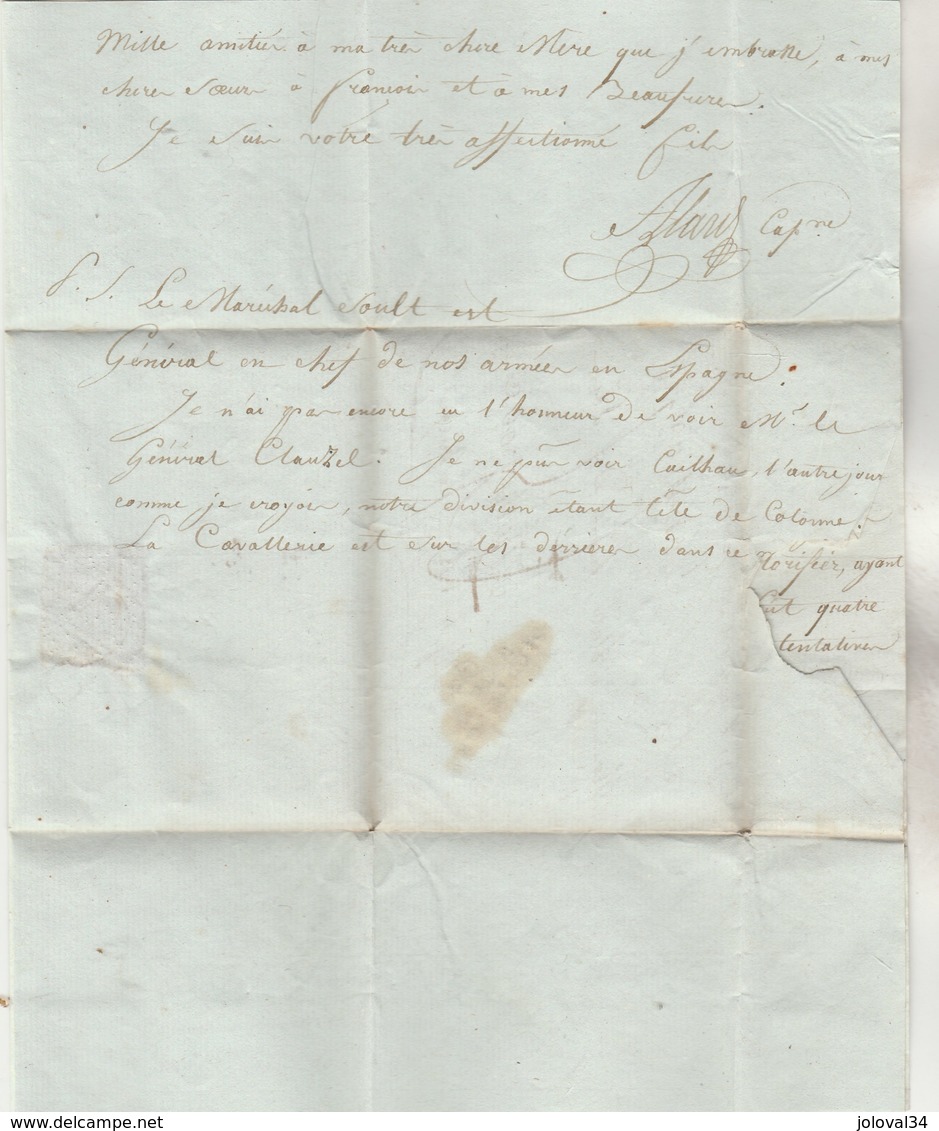 Mille amitiés à ma très chere Mere que j'embrasse, à mes
cheres Sœurs à françois et à mes Beaufreres.
Je suis votre très affectionné fils
Alard Cap.ne
P. S. Le Maréchal Soult est
Général en chef de nos armées en Espagne.
Je n'ai pas encore eu l'honneur de voir Mr. le
Général Clauzel. Je ne pus voir Cailhau, l'autre jour
comme je croyois, notre division étant tête de Colonne.
La Cavallerie est sur les derrieres dans ce
ayant
quatre
tentatives
joloval34